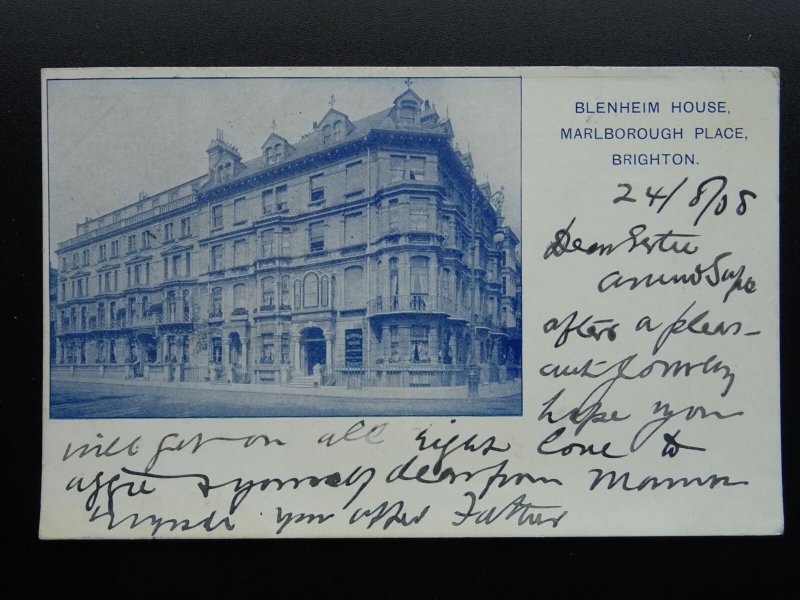 BLENHEIM HOUSE,
MARLBOROUGH PLACE,
BRIGHTON.
24/8/08
Dear Gertie
arrived safe
after a pleas-
ant journey
hope you
will get on all right love to
aggie & yourself dear from Mamma
you after Father